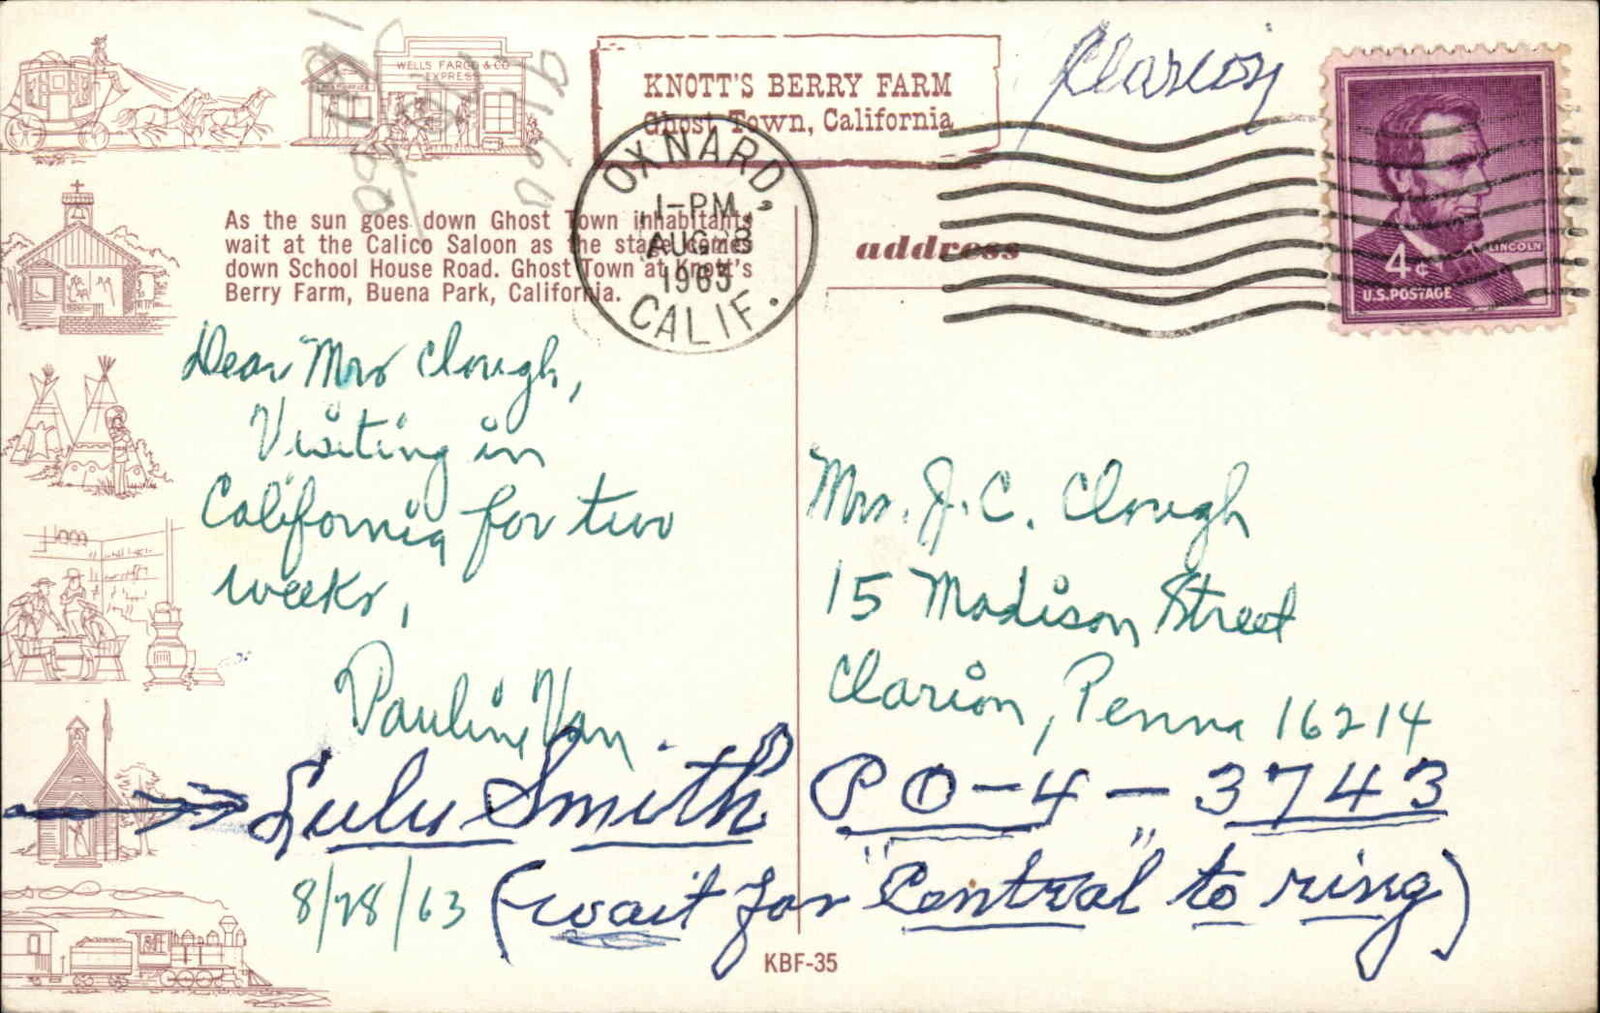 WELLS FARGO & CO
EXPRESS
KNOTT'S BERRY FARM
Ghost Town, California
Clarion
OXNARD,
1-PM
AUG 28
1963
CALIF.
LINCOLN
4¢
U.S. POSTAGE
As the sun goes down Ghost Town inhabitants
wait at the Calico Saloon as the stage comes
down School House Road. Ghost Town at Knott's
Berry Farm, Buena Park, California.
address
Dear Mrs Clough,
Visiting in
California for two
weeks,
Pauline Van
Mrs. J. C. Clough
15 Madison Street
Clarion, Penna 16214
Lulu Smith PO-4-3743
8/28/63 (wait for "Central" to ring)
KBF-35